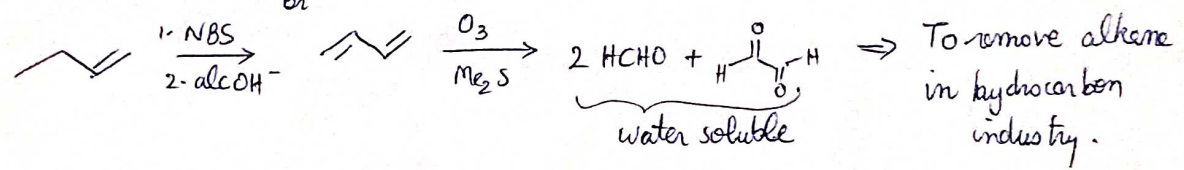 or
1. NBS
2. alc OH⁻
O₃
Me₂S
2 HCHO + H O O H
water soluble
⇒ To remove alkene
in hydrocarbon
industry.